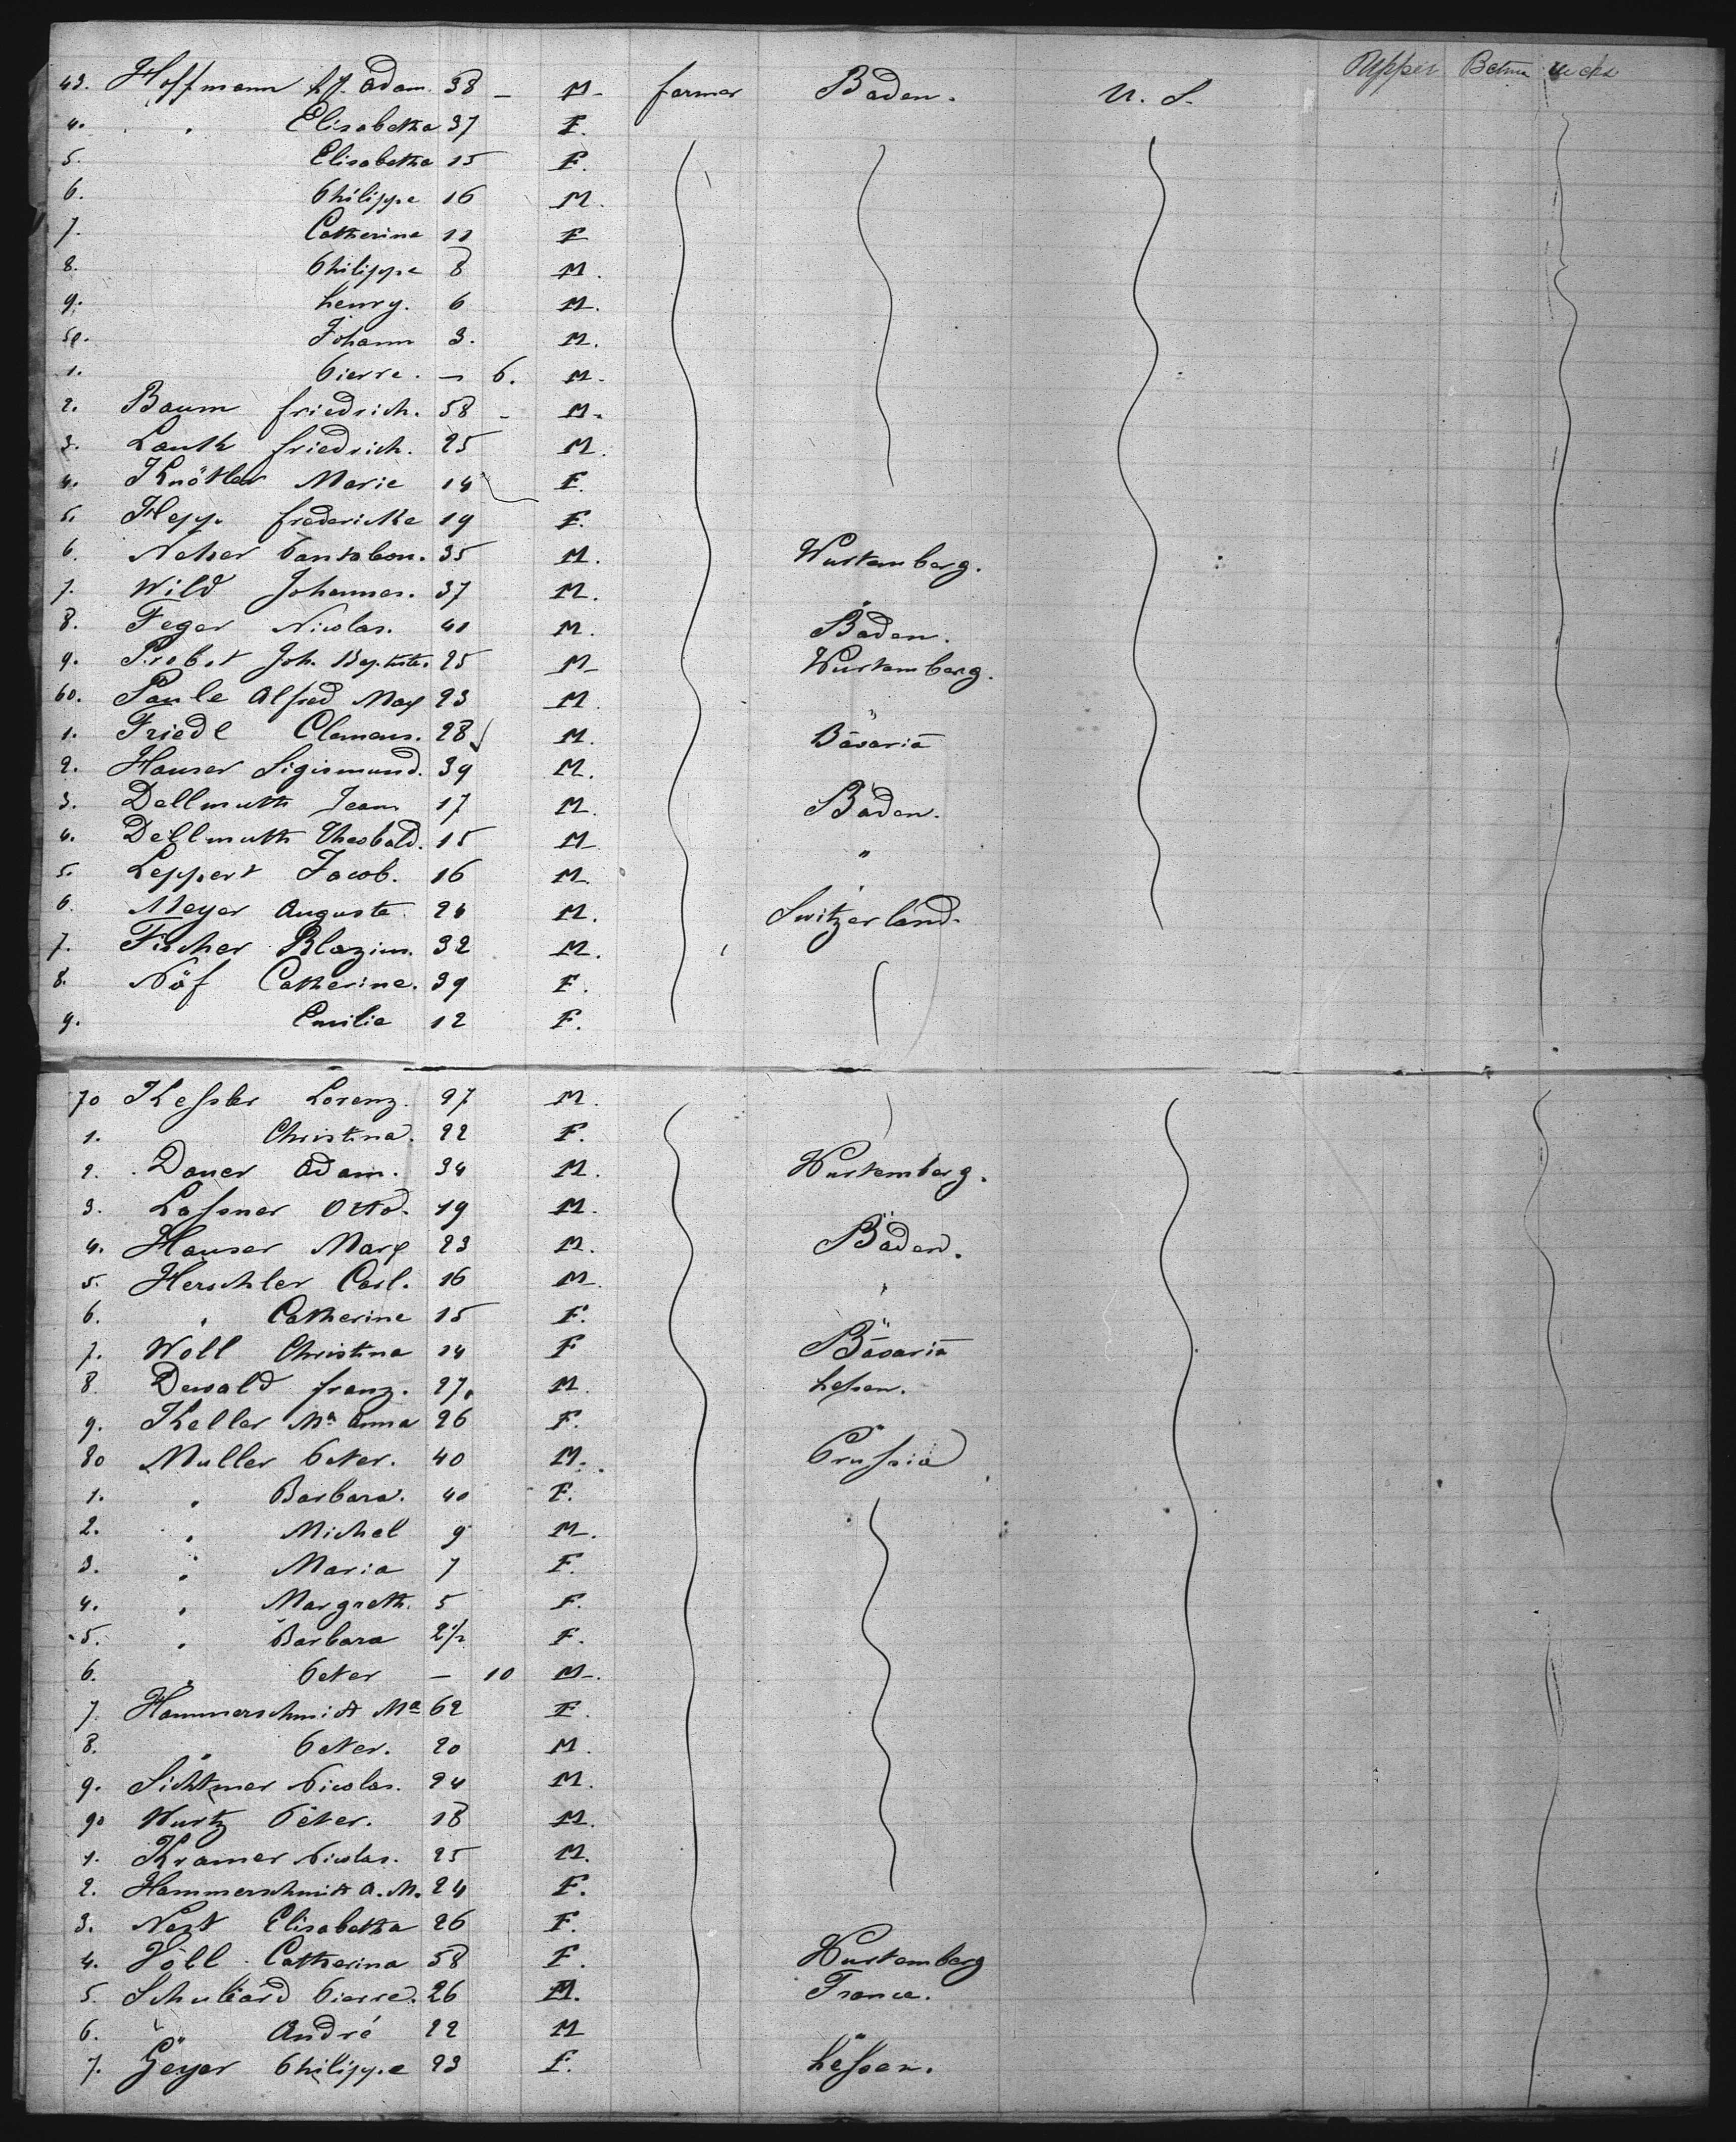 Upper Betwn decks
43. Hoffmann Adam 38 – M. farmer Baden. U. S.
4. " Elisabetha 37 F.
5. Elisabetha 15 F.
6. Philippe 16 M.
7. Catherine 11 F
8. Philippe 8 M.
9. henry. 6 M.
50. Johann 3. M.
1. Pierre. – 6. M.
2. Baum friedrich. 58 – M.
3. Lauth friedrich. 25 M.
4. Knötler Marie 14 F.
5. Hepp. fredericke 19 F.
6. Neher Pantaleon. 35 M. Wurtemberg.
7. Wild Johannes. 37 M. "
8. Feger Nicolas. 41 M. Baden.
9. Probst Joh. Baptiste. 25 M Wurtemberg.
60. Paule Alfred Max 23 M. "
1. Friedl Clemens. 28 M. Bavaria
2. Hauser Sigismund. 39 M. "
3. Dellmuth Jean 17 M. Baden.
4. Dellmuth Theobald. 15 M "
5. Leppert Jacob. 16 M. "
6. Meyer Auguste 24 M. Switzerland.
7. Fischer Blazius. 32 M.
8. Näf Catherine. 39 F.
9. Emilie 12 F.
70 Kessler Lorenz. 27 M.
1. Christina. 22 F.
2. Daner Adam. 34 M. Wurtemberg.
3. Lassner Otto. 19 M. "
4. Hauser Max 23 M. Baden.
5. Herschler Carl. 16 M. "
6. " Catherine 15 F. "
7. Woll Christina 14 F Bavaria
8. Dewald franz. 27. M. hessen.
9. Keller Ma anna 26 F. "
80 Muller Peter. 40 M. Prussia
1. " Barbara. 40 F.
2. " Michel 9 M.
3. " Maria 7 F.
4. " Margreth. 5 F.
5. " Barbara 2½ F.
6. " Peter – 10 M.
7. Hammerschmidt Ma 62 F.
8. " Peter. 20 M.
9. Nicolas. 24 M.
90 Wurtz Peter. 18 M.
1. Kramer Nicolas. 25 M.
2. Hammerschmidt A. M. 24 F.
3. Elisabetha 26 F.
4. Höll Catherina 58 F. Wurtemberg
5. Pierre. 26 M. France.
6. " André 22 M "
7. Geyer Philippe 23 F. hessen.